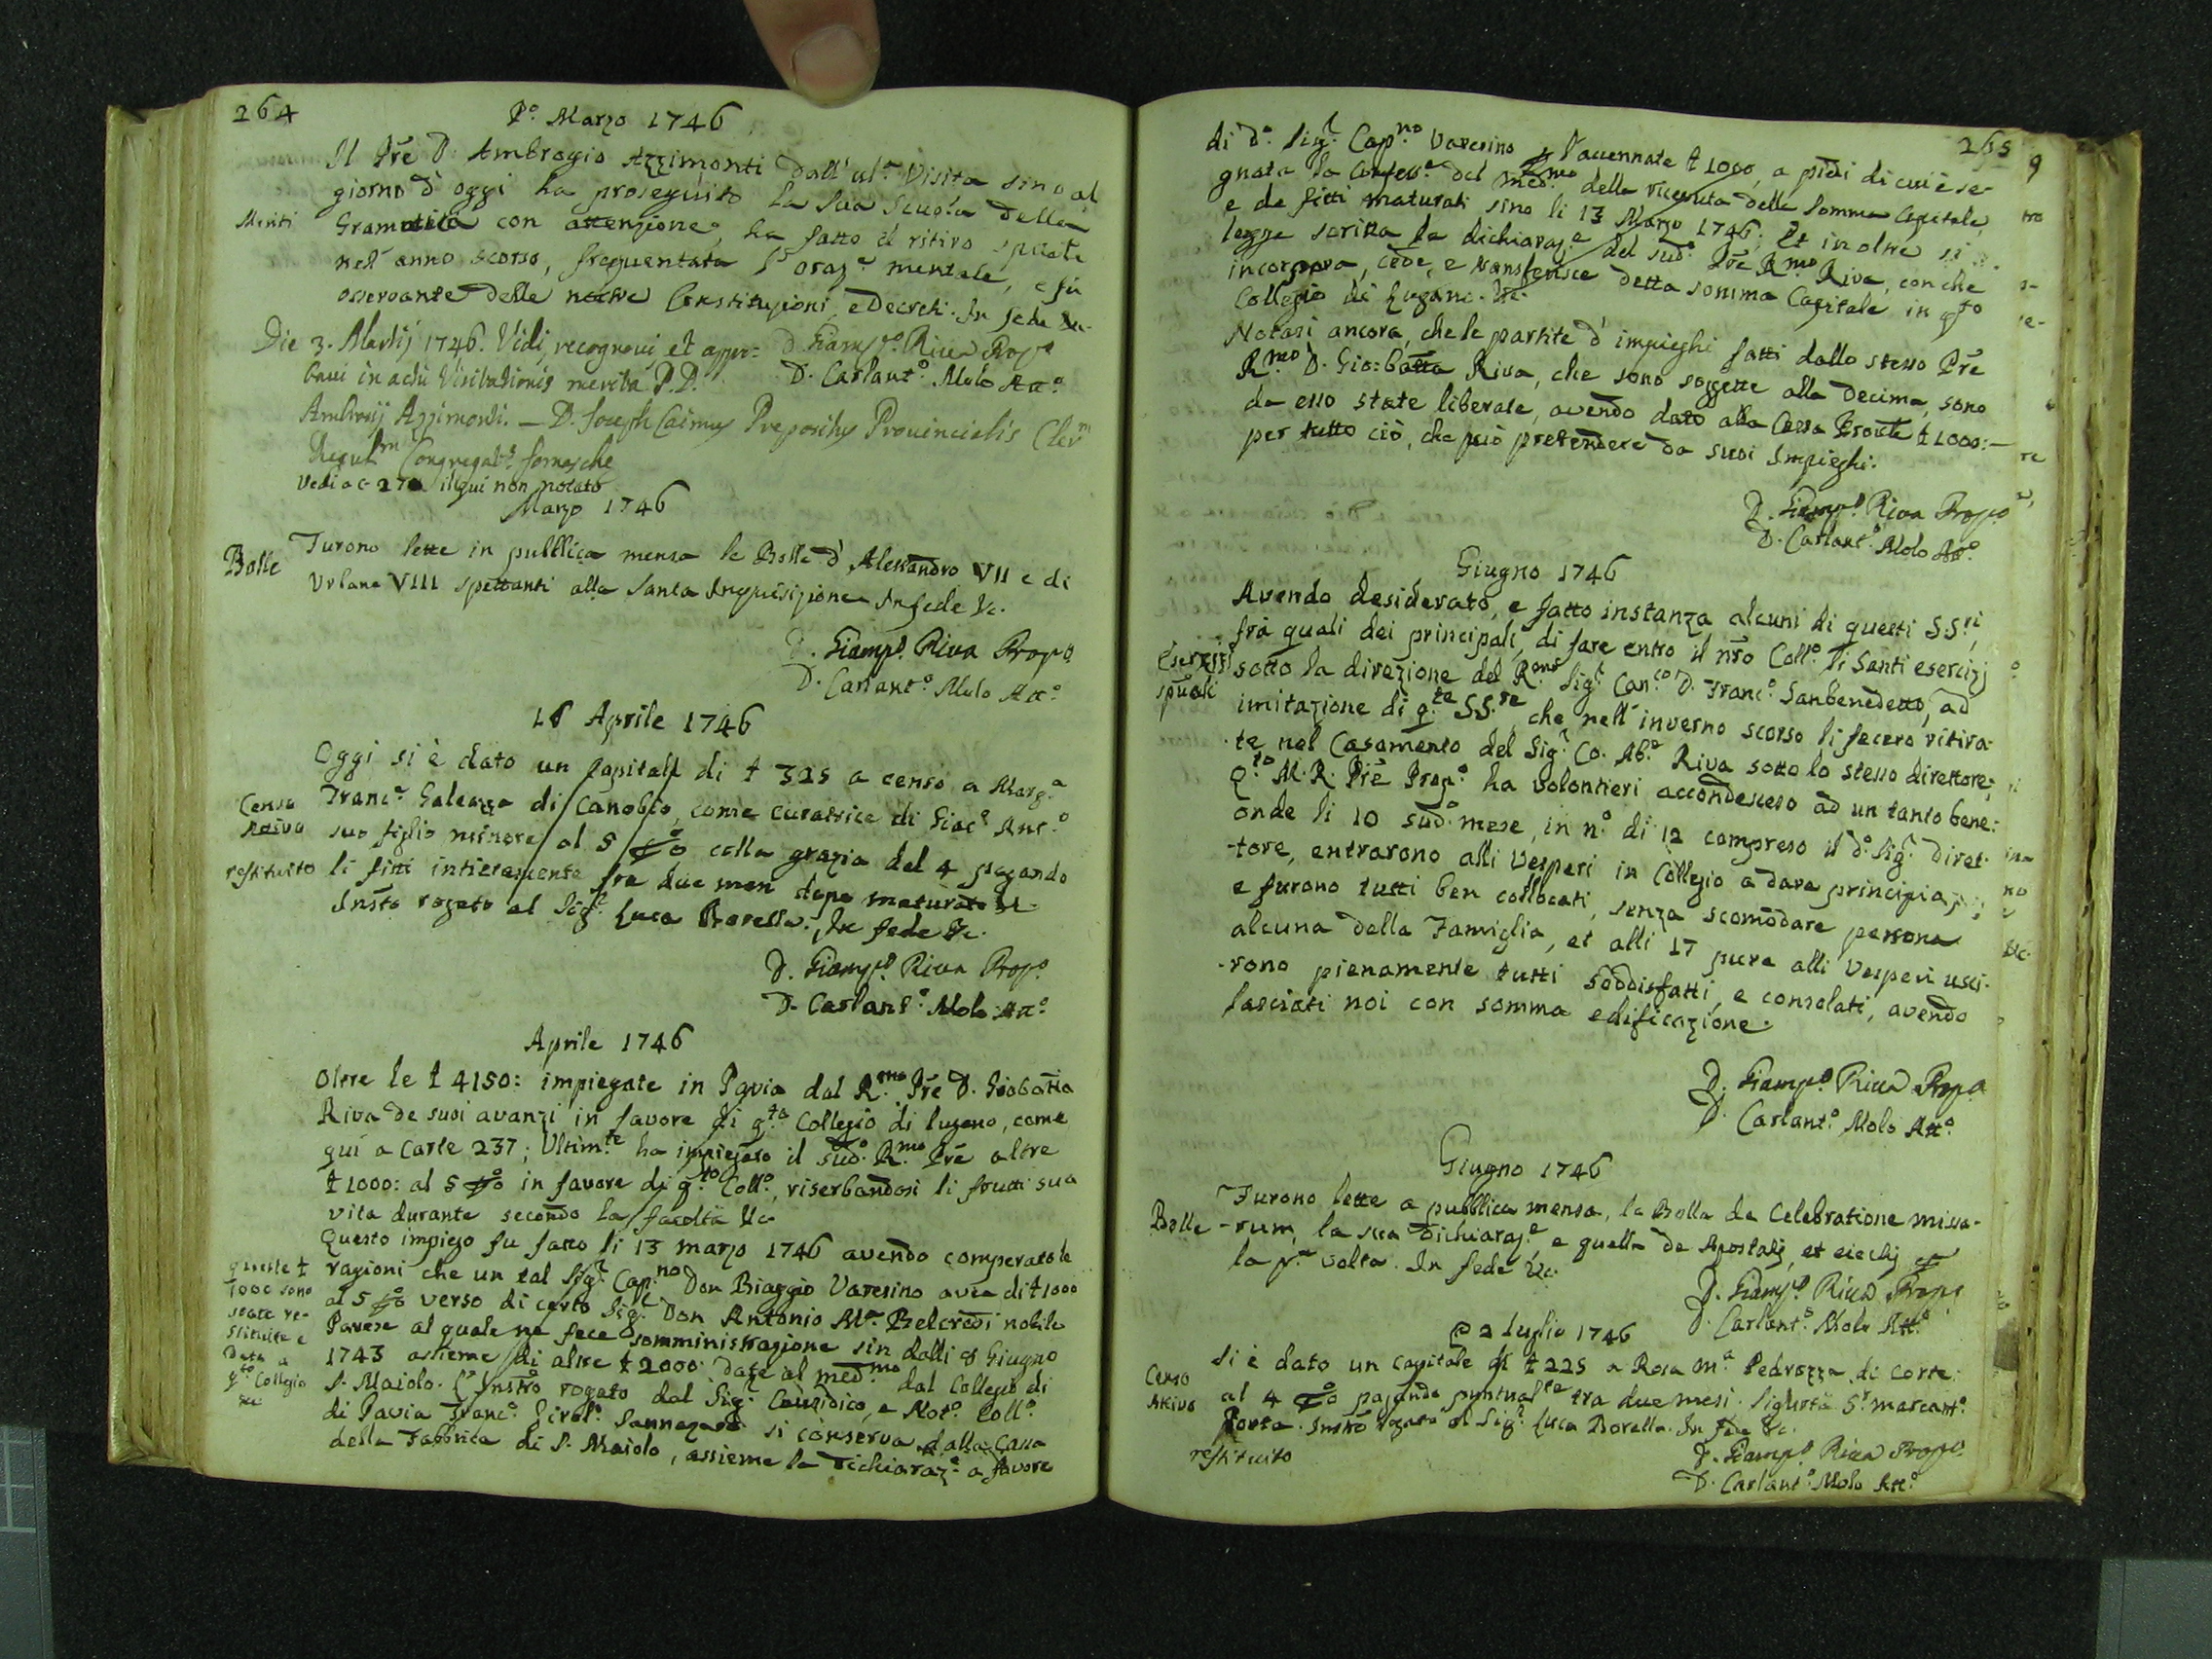 264
P.º Marzo 1746
Il Prẽ D. Ambrogio Azzimonti dall' ul.ª Visita sino al
giorno d' oggi ha proseguito la sua scuola della
Meriti
Gramatica con attenzione, ha fatto il ritiro spirit.e
nell' anno scorso, frequentata l' oraz.e mentale, e fù
osservante delle nostre Constituzioni, e Decreti. In fede &c.
D. Giamp.º Riva Prop.º
D. Carlant.º Molo Att.º
Die 3. Martij 1746. Vidi, recognovi, et appro-
bavi in actu Visitationis merita P. D.
Ambrosij Azzimonti. — D. Joseph Caimus Prepositus Provincialis Cler.m
Regul.m Congregat.s Somasche
Vedi a c. 270 il qui non notato
Marzo 1746
Bolle
Furono lette in pubblica mensa le Bolle d' Alessandro VII e di
Urbano VIII spettanti alla Santa Inquisizione In fede &c.
D. Giamp.º Riva Prop.º
D. Carlant.º Molo Att.º
16 Aprile 1746
Oggi si è dato un Capitale di ₤ 325 a censo a Marg.ª
Censo
Attivo
Franc.ª Galeazza di Canobio, come curatrice di Giac.º Ant.º
suo figlio minore al 5 p% colla grazia del 4 pagando
restituito
li fitti intieramente fra due mesi dopo maturato &c.
Instõ rogato al Sig.r Luca Borella. In fede &c.
D. Giamp.º Riva Prop.º
D. Carlant.º Molo Att.º
Aprile 1746
Oltre le ₤ 4150: impiegate in Pavia dal R.mo Prẽ D. Giobatta
Riva de suoi avanzi in favore di q.to Collegio di lugano, come
qui a Carte 237; Ultim.te ha impiegato il sud.º R.mo Prẽ altre
₤ 1000: al 5 p% in favore di q.to Coll.º, riserbandosi li frutti sua
vita durante secondo la facoltà &c.
Questo impiego fu fatto li 13 marzo 1746 avendo comperato le
queste ₤
1000 sono
state re-
stituite e
date a
q.to Collegio
&c.
ragioni che un tal Sig.r Cap.no Don Biaggio Varesino avea di ₤ 1000
al 5 p% verso di certo Sig.r Don Antonio M.ª Belcredi nobile
Pavese al quale ne fece somministrazione sin dalli 8 Giugno
1743 assieme di altre ₤ 2000: date al med.mo dal Collegio di
S. Maiolo. L' Instrõ rogato dal Sig.r Causidico, e Not.º Coll.º
di Pavia Franc.º Girol.º Sannazaro si conserva dalla Cassa
della Fabbrica di S. Maiolo, assieme la dichiaraz.e a favore
265
di d.º Sig.r Cap.no Varesino p l'accennate ₤ 1000, a piedi di cui è se-
gnata la confess.e del med.mo della ricevuta della somma Capitale,
e de fitti maturati sino li 13 Marzo 1746; Et in oltre si
legge scritta la dichiaraz.e del sud.º Prẽ R.mo Riva, con che
incorpora, cede, e transferisce detta somma Capitale in q.to
Collegio di Lugano. &c.
Notasi ancora, che le partite d' impieghi fatti dallo stesso Prẽ
R.mo D. Gio: Batta Riva, che sono soggette alla Decima, sono
da esso state liberate, avendo dato alla Cassa Pro.le ₤ 1000:—
per tutto ciò, che può pretendere da suoi Impieghi.
D. Giamp.º Riva Prop.º
D. Carlant.º Molo Att.º
Giugno 1746
Avendo desiderato, e fatto instanza alcuni di questi SS.ri,
frà quali dei principali, di fare entro il nrõ Coll.º li Santi esercizj
Esercizj
spũali
sotto la direzione del R.mo Sig.r Can.co D. Franc.º Sanbenedetto, ad
imitazione di q.te SS.re, che nell' inverno scorso li fecero ritira-
te nel Casamento del Sig.r Co. Ab.e Riva sotto lo stesso direttore;
Q.to M. R. Prẽ Prop.º ha volontieri accondesceso ad un tanto bene:
onde li 10 sud.º mese, in n.º di 12 compreso il d.º Sig.r Diret-
tore, entrarono alli Vesperi in Collegio a dare principio,
e furono tutti ben collocati, senza scomodare persona
alcuna della Famiglia, et alli 17 pure alli Vesperi usci-
rono pienamente tutti soddisfatti, e consolati, avendo
lasciati noi con somma edificazione.
D. Giamp.º Riva Prop.º
D. Carlant.º Molo Att.º
Giugno 1746
Furono lette a pubblica mensa, la Bolla de Celebratione missa-
Bolle
-rum, la sua Dichiaraz.e e quella de Apostatis, et eiectis p
la p.ª volta. In fede &c.
D. Giamp.º Riva Prop.º
D. Carlant.º Molo Att.º
2 Luglio 1746
Censo
Attivo
Si è dato un capitale di ₤ 225 a Rosa M.ª Pedrazza di Corte
al 4 p% pagando puntual.te tra due mesi. Sigurtà S.r marcant.º
Porta. Instrõ rogato al Sig.r Luca Borella. In fede &c.
restituito
D. Giamp.º Riva Prop.º
D. Carlant.º Molo Att.º